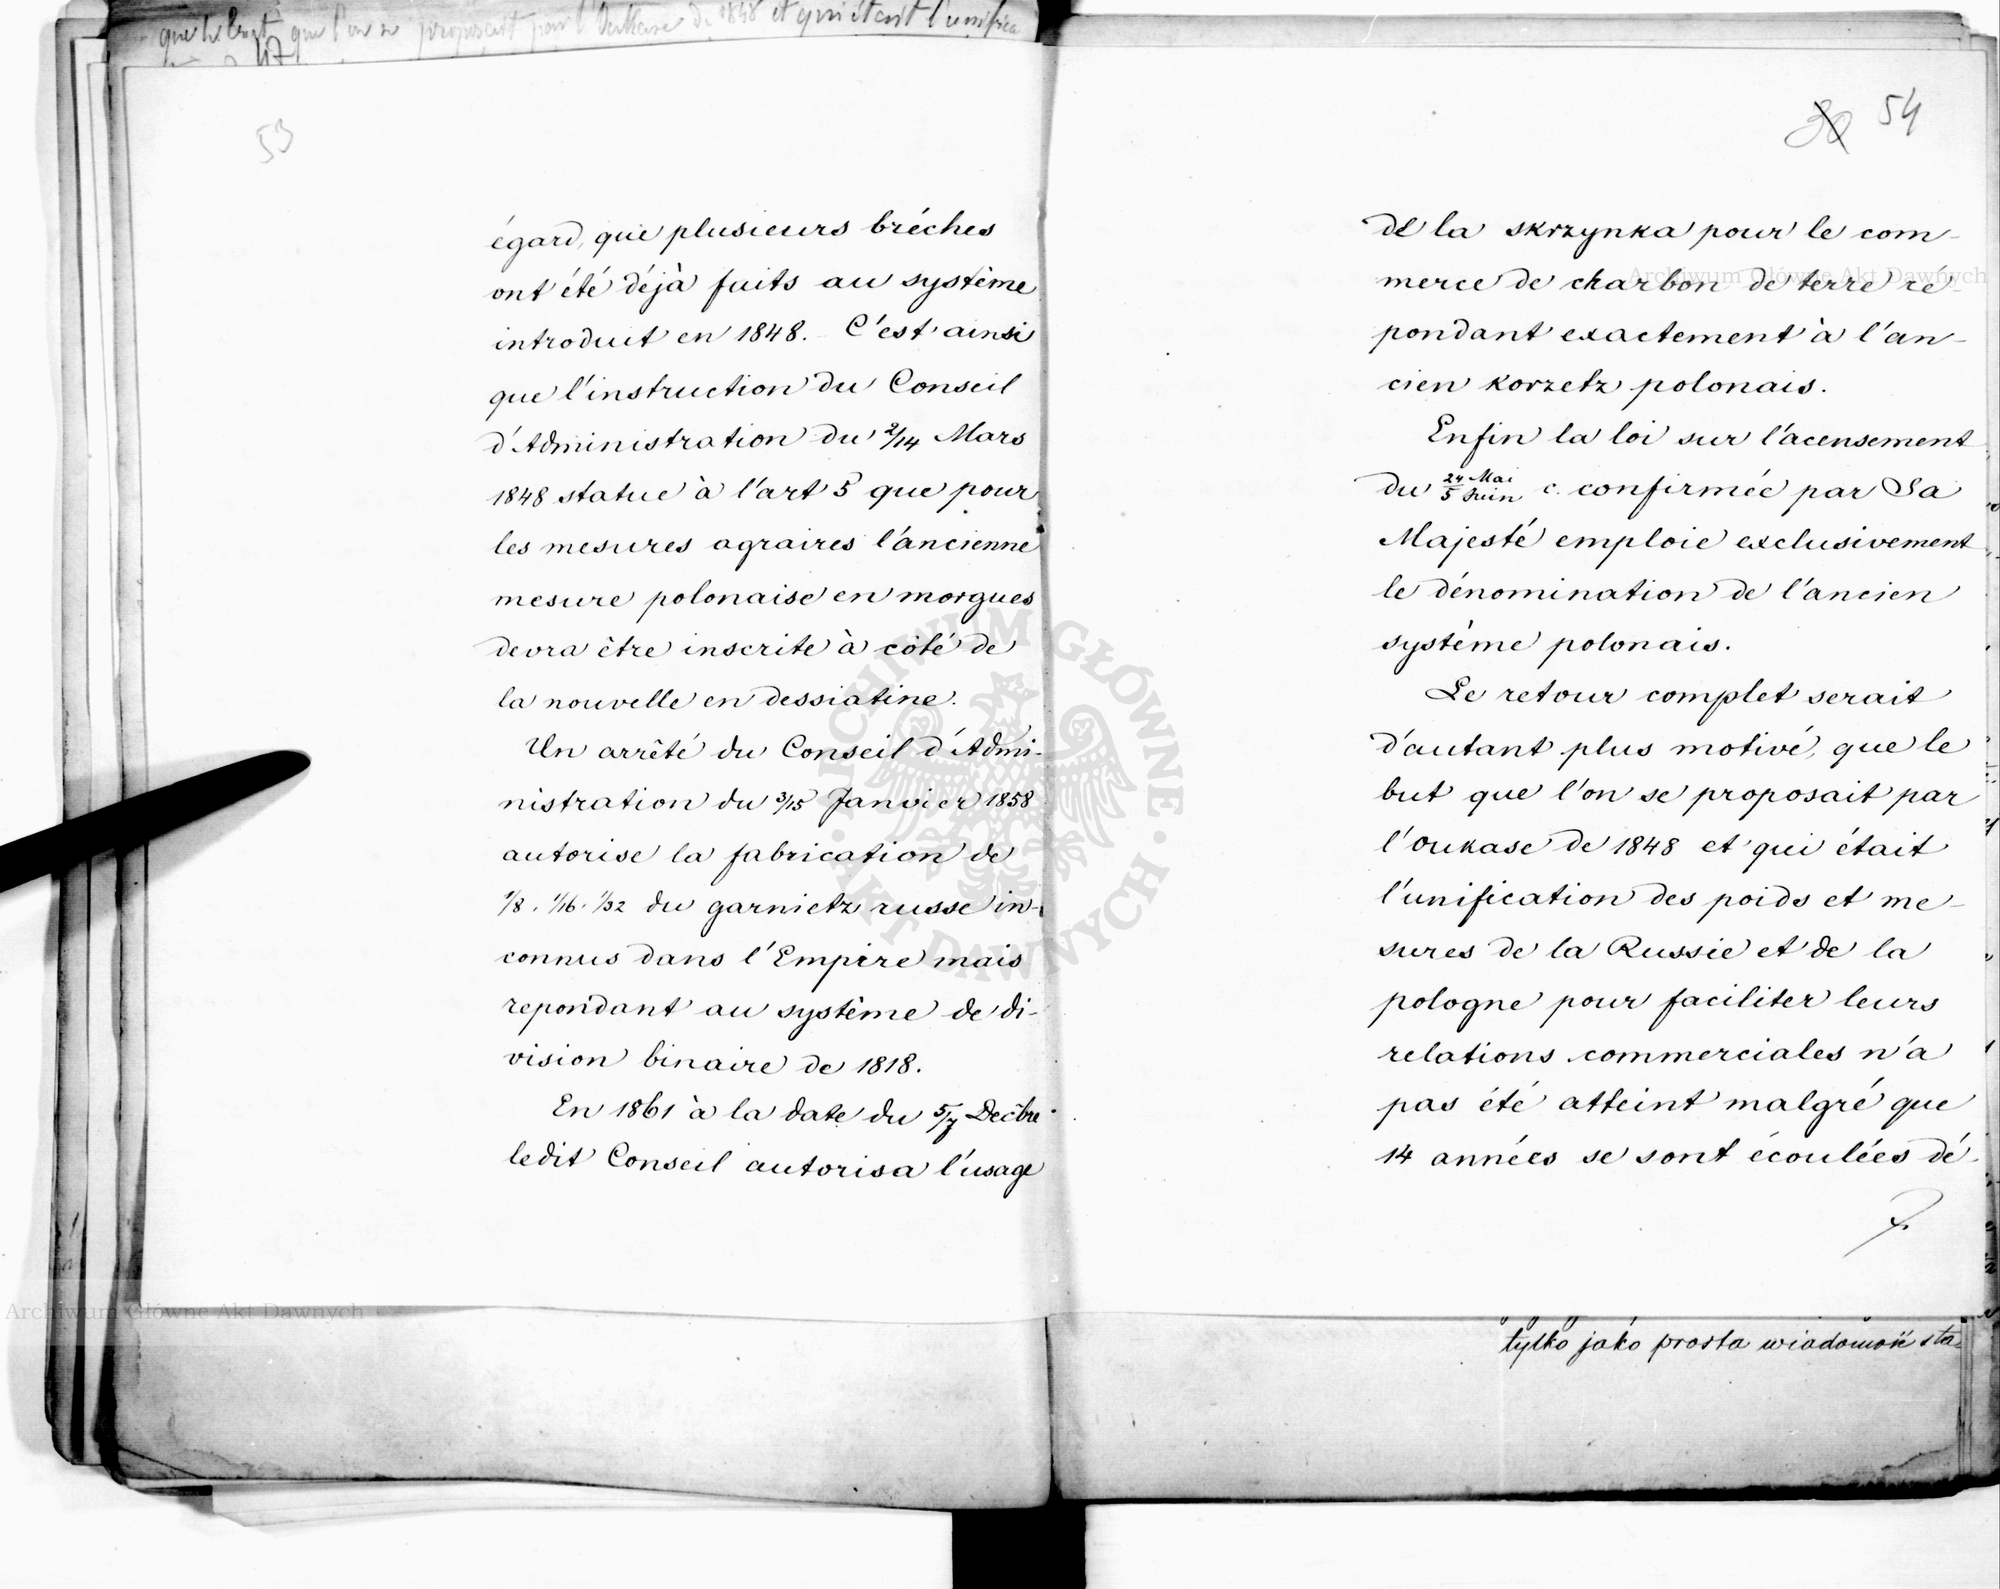 que le but que l'on se proposait par l'Oukase de 1848 et qui était l'unifica
53
égard, que plusieurs bréches
ont été déjà faits au système
introduit en 1848. C'est ainsi
que l'instruction du Conseil
d'Administration du 2/14 Mars
1848 statue à l'art 5 que pour
les mesures agraires l'ancienne
mesure polonaise en morgues
devra être inscrite à côté de
la nouvelle en dessiatine.
Un arrêté du Conseil d'Admi-
nistration du 3/15 Janvier 1858
autorise la fabrication de
1/8. 1/16. 1/32 du garnietz russe in-
connus dans l'Empire mais
repondant au système de di-
vision binaire de 1818.
En 1861 à la date du 5/7 Decbre
ledit Conseil autorisa l'usage
30 54
de la skrzynka pour le com-
merce de charbon de terre ré-
pondant exactement à l'an-
cien korzetz polonais.
Enfin la loi sur l'acensement
du 24 Mai/5 Juin c. confirmée par Sa
Majesté emploie exclusivement
le dénomination de l'ancien
système polonais.
Le retour complet serait
d'autant plus motivé, que le
but que l'on se proposait par
l'oukase de 1848 et qui était
l'unification des poids et me-
sures de la Russie et de la
pologne pour faciliter leurs
relations commerciales n'a
pas été atteint malgré que
14 années se sont écoulées dé-
tylko jako prosta wiadomość sta-
Archiwum Główne Akt Dawnych
Archiwum Główne Akt Dawnych
ARCHIWUM GŁÓWNE
AKT DAWNYCH